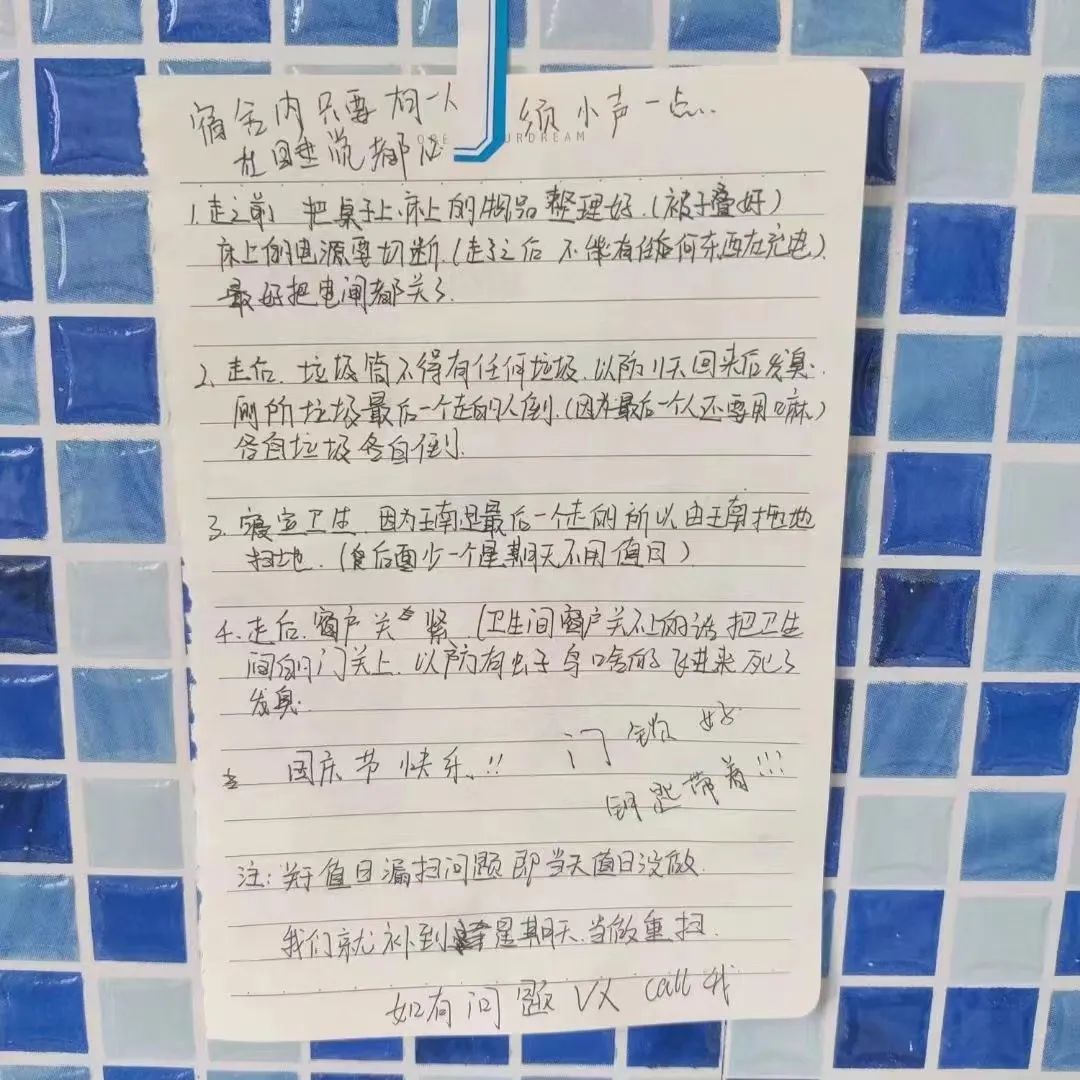 宿舍内只要有一人 须小声一点..
在睡觉都
URDREAM
1.走之前 把桌子上、床上的物品整理好.(被子叠好)
床上的电源要切断.(走了之后 不能有任何东西在充电).
最好把电闸都关了.
2.走后.垃圾筒不得有任何垃圾.以防11天回来后发臭.
厕所垃圾最后一个走的人倒.(因为最后一个人还要用嘛)
各自垃圾各自倒.
3.寝室卫生.因为王南是最后一个走的所以由王南拖地
扫地.(后面少一个星期天不用值日)
4.走后.窗户关紧.(卫生间窗户关不上的话把卫生
间的门关上.以防有虫子鸟啥的飞进来死了
发臭.
国庆节快乐.!! 门锁好
钥匙带着!!!
注:关于值日漏扫问题即当天值日没做.
我们就补到星期天.当做重扫.
如有问题 VX call 我